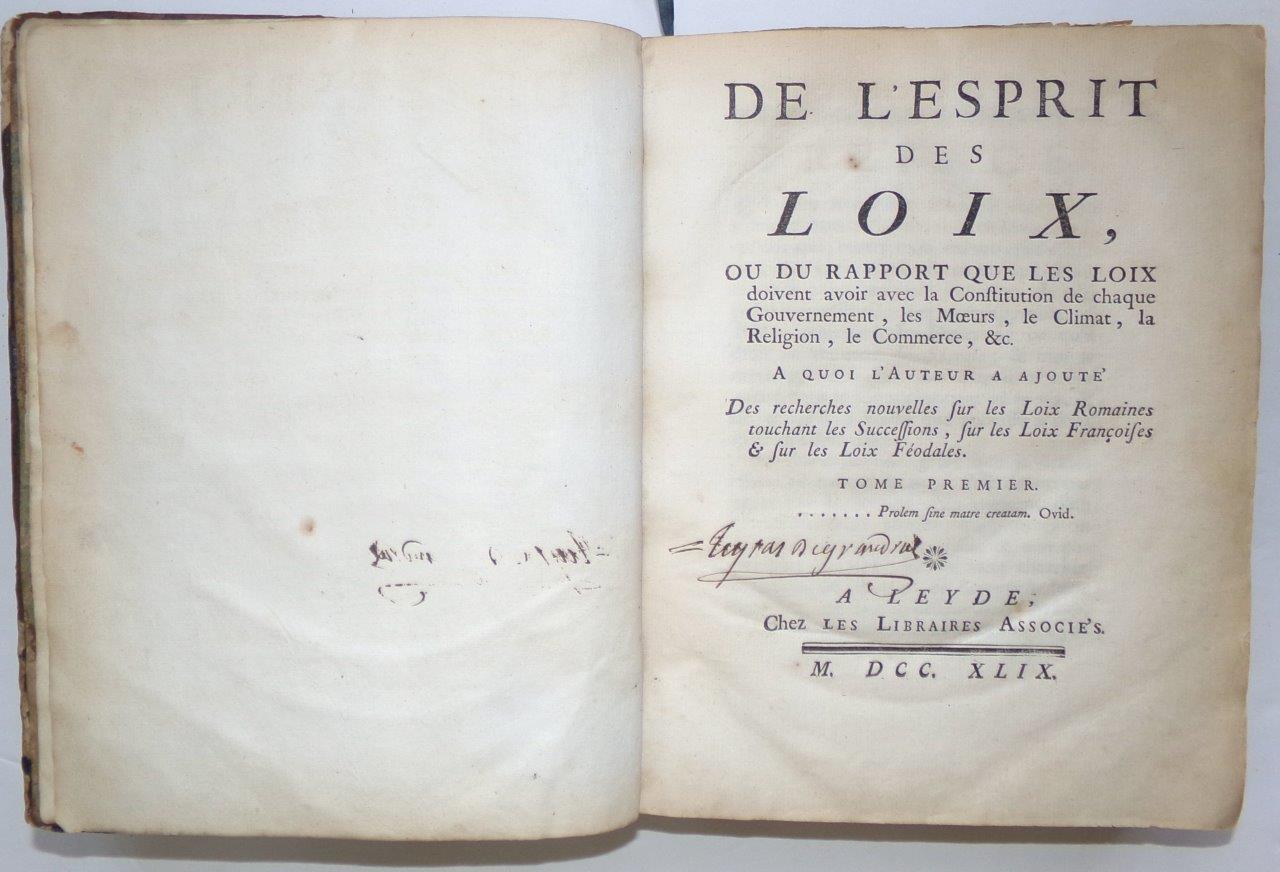 DE L'ESPRIT
DES
LOIX,
OU DU RAPPORT QUE LES LOIX
doivent avoir avec la Conſtitution de chaque
Gouvernement, les Mœurs, le Climat, la
Religion, le Commerce, &c.
A QUOI L'AUTEUR A AJOUTE'
Des recherches nouvelles ſur les Loix Romaines
touchant les Succeſſions, ſur les Loix Françoiſes
& ſur les Loix Féodales.
TOME PREMIER.
....... Prolem ſine matre creatam. Ovid.
A LEYDE,
Chez LES LIBRAIRES ASSOCIE'S.
M. DCC. XLIX.